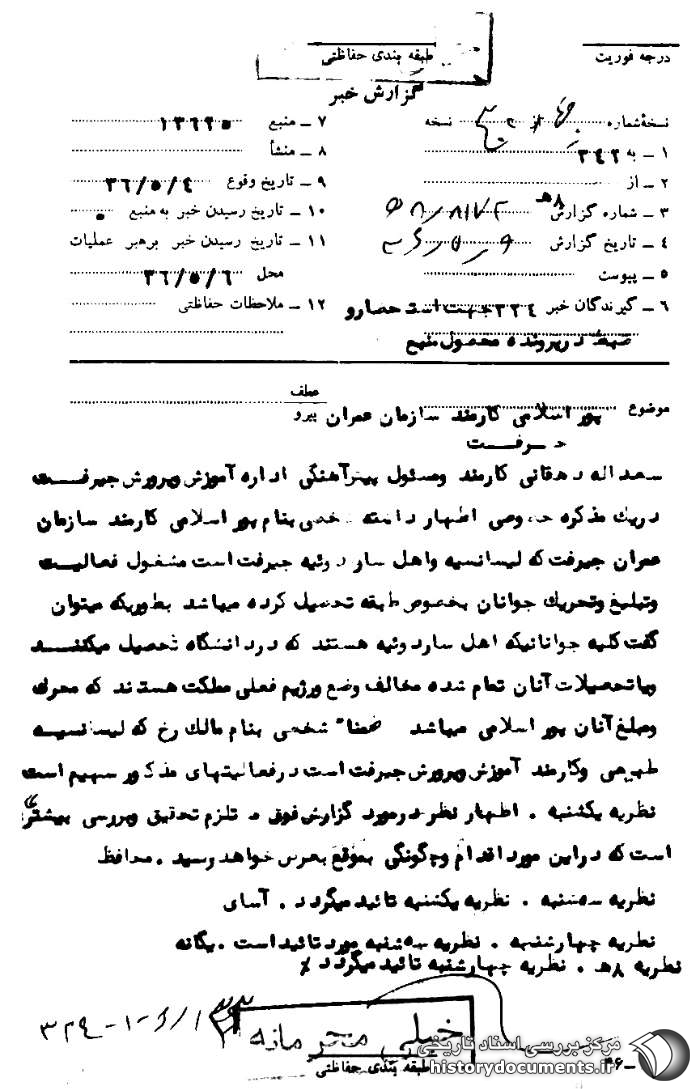 درجه فوریت
طبقه بندی حفاظتی
گزارش خبر
نسخهٔ شماره از نسخه
۱ ـ به ۳۴۲
۲ ـ از
۳ ـ شماره گزارش ۸هـ
۴ ـ تاریخ گزارش
۵ ـ پیوست
۶ ـ گیرندگان خبر ۳۳۴ جهت استحضار و
ضبط در پرونده محصول منبع
۷ ـ منبع ۱۳۶۲۵
۸ ـ منشأ
۹ ـ تاریخ وقوع ۳۶/۵/۴
۱۰ ـ تاریخ رسیدن خبر به منبع ۰
۱۱ ـ تاریخ رسیدن خبر برهبر عملیات
محل ۳۶/۵/۶
۱۲ ـ ملاحظات حفاظتی
موضوع پور اسلامی کارمند سازمان عمران
جیرفت
عطف
پیرو
سعداله دهقانی کارمند ومسئول پیش‌آهنگی اداره آموزش وپرورش جیرفت
دریك مذاکره خصوصی اظهار داشته شخصی بنام پور اسلامی کارمند سازمان
عمران جیرفت که لیسانسیه واهل ساردوئیه جیرفت است مشغول فعالیت
وتبلیغ وتحریك جوانان بخصوص طبقه تحصیل کرده میباشد بطوریکه میتوان
گفت کلیه جوانانیکه اهل ساردوئیه هستند که در دانشگاه تحصیل میکنند
ویاتحصیلات آنان تمام شده مخالف وضع ورژیم فعلی مملکت هستند که محرك
ومبلغ آنان پور اسلامی میباشد ضمنا" شخصی بنام مالك رخ که لیسانسیه
طبیعی وکارمند آموزش وپرورش جیرفت است درفعالیتهای مذکور سهیم است
نظریه یکشنبه . اظهار نظر درمورد گزارش فوق مستلزم تحقیق وبررسی بیشتری
است که دراین مورد اقدام وچگونگی بموقع بعرض خواهد رسید . محافظ
نظریه سه‌شنبه . نظریه یکشنبه تائید میگردد . آسای
نظریه چهارشنبه . نظریه سه‌شنبه مورد تائید است . یگانه
نظریه ۸هـ . نظریه چهارشنبه تائید میگردد
خیلی محرمانه
طبقه بندی حفاظتی
مرکز بررسی اسناد تاریخی
historydocuments.ir